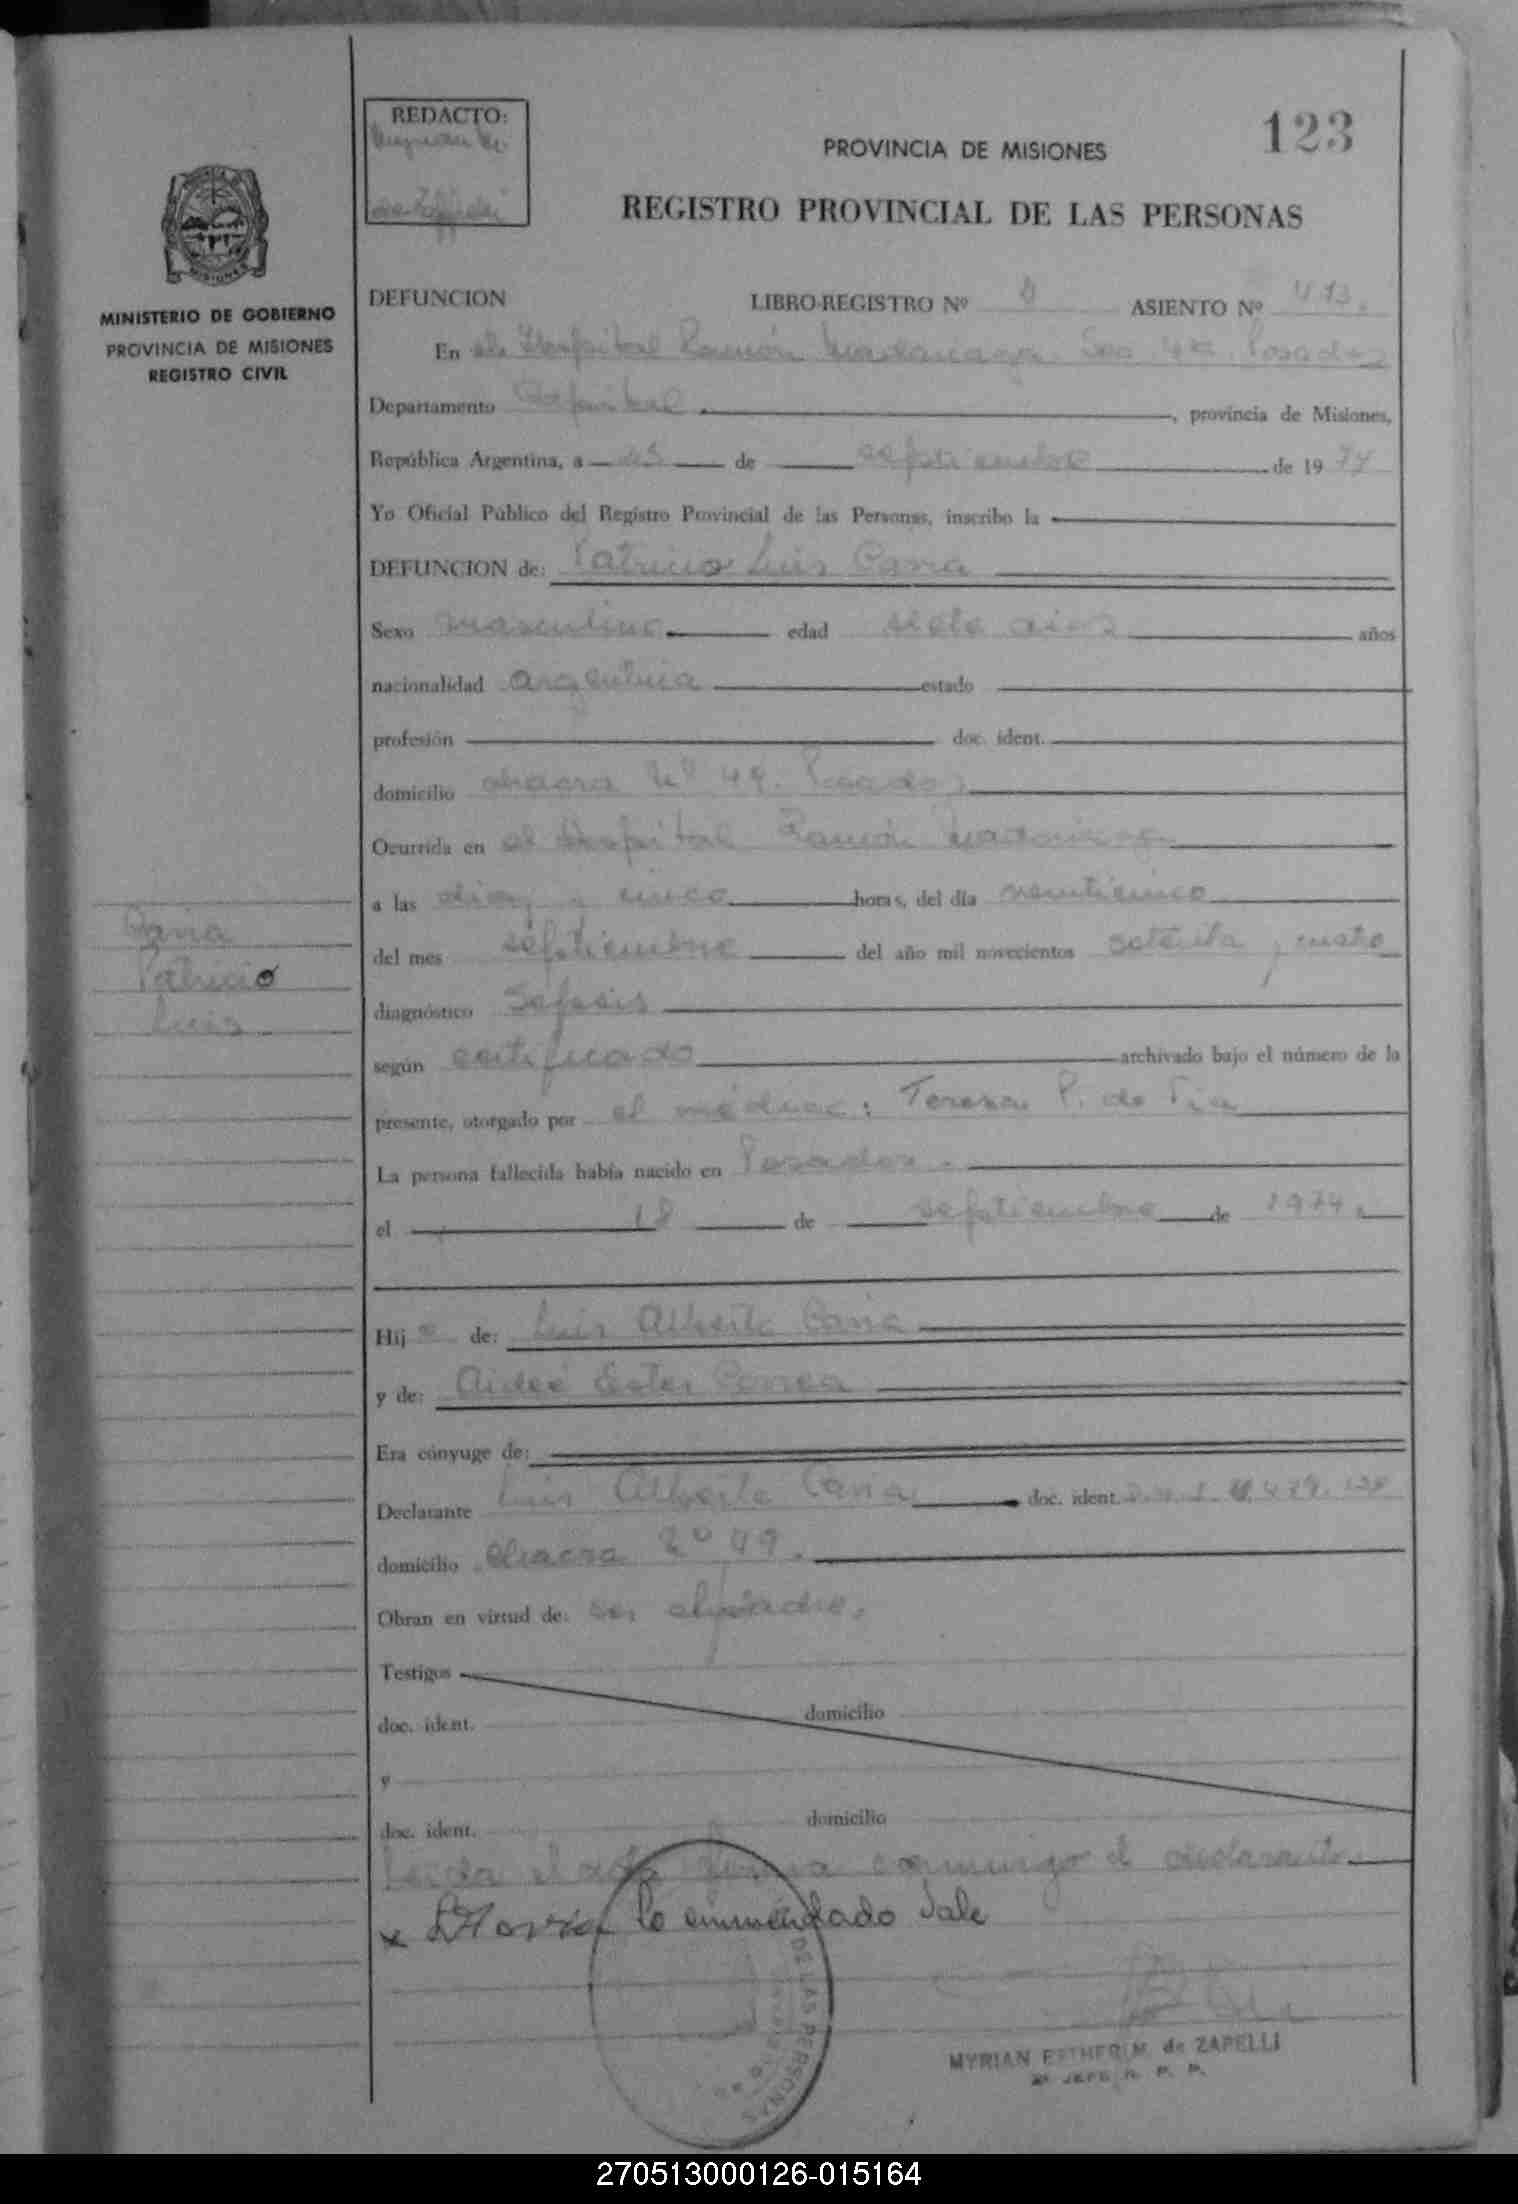 REDACTO:
123
PROVINCIA DE MISIONES
REGISTRO PROVINCIAL DE LAS PERSONAS
MISIONES
MINISTERIO DE GOBIERNO
PROVINCIA DE MISIONES
REGISTRO CIVIL
DEFUNCION LIBRO-REGISTRO Nº ASIENTO Nº 413.
En el Hospital Ramón Madariaga. Sec 4ª. Posadas
Departamento Capital, provincia de Misiones,
República Argentina, a 25 de septiembre de 1974
Yo Oficial Público del Registro Provincial de las Personas, inscribo la
DEFUNCION de: Patricio Luis
Sexo masculino edad siete años
nacionalidad argentina estado
profesión doc. ident.
domicilio chacra Nº 49. Posadas
Ocurrida en el Hospital Ramón Madariaga
a las diez y cinco horas, del día veinticinco
del mes septiembre del año mil novecientos setenta y cuatro
Patricio
Luis
diagnóstico Sepsis
según certificado archivado bajo el número de la
presente, otorgado por el médico: Teresa P. de
La persona fallecida había nacido en Posadas.
el 18 de septiembre de 1974.
Hijo de: Luis Alberto
y de: Aideé Ester Correa
Era cónyuge de:
Declarante Luis Alberto doc. ident.
domicilio chacra Nº 49.
Obran en virtud de: ser el padre.
Testigos
doc. ident. domicilio
y
doc. ident. domicilio
Leida el acta firma conmigo el declarante
x lo enmendado Vale
DE LAS PERSONAS
MYRIAN ESTHER M. de ZAPELLI
2º JEFE R. P. P.
270513000126-015164